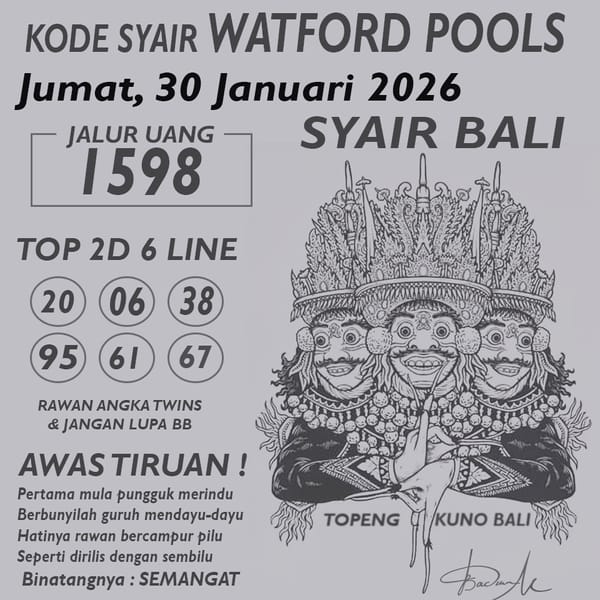 KODE SYAIR WATFORD POOLS
Jumat, 30 Januari 2026
JALUR UANG
1598
SYAIR BALI
TOP 2D 6 LINE
20 06 38
95 61 67
RAWAN ANGKA TWINS
& JANGAN LUPA BB
AWAS TIRUAN !
Pertama mula pungguk merindu
Berbunyilah guruh mendayu-dayu
Hatinya rawan bercampur pilu
Seperti dirilis dengan sembilu
Binatangnya : SEMANGAT
TOPENG KUNO BALI